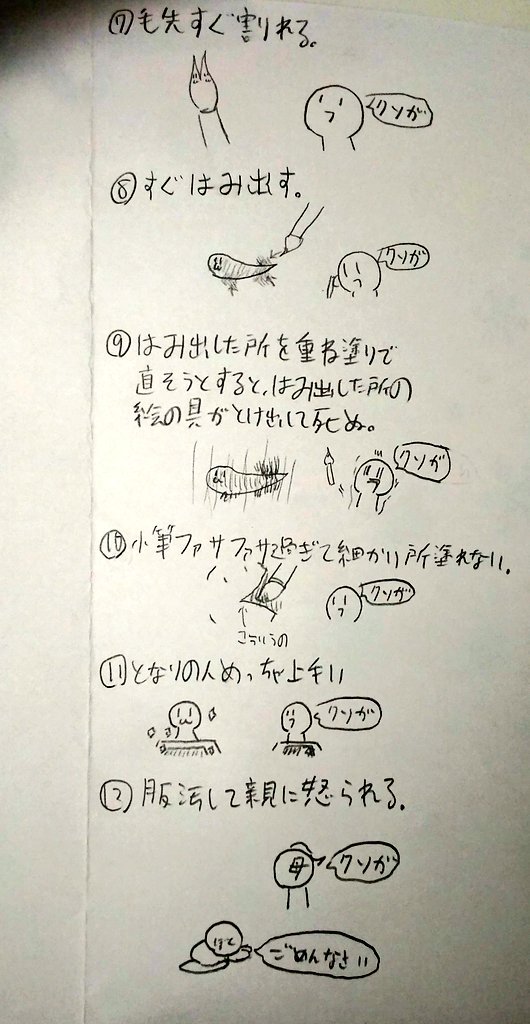 ⑦毛先すぐ割れる。
クソが
⑧すぐはみ出す。
クソが
⑨はみ出した所を重ね塗りで
直そうとすると、はみ出した所の
絵の具がとけ出して死ぬ。
クソが
⑩小筆ファサファサ過ぎて細かい所塗れない。
クソが
こういうの
⑪となりの人めっちゃ上手い
クソが
⑫服汚して親に怒られる。
母
クソが
ぼく
ごめんなさい